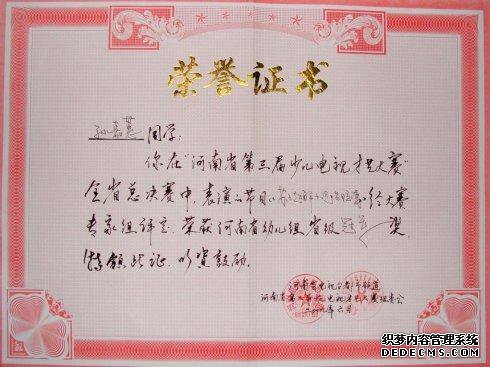 荣誉证书
孙嘉慧 同学:
你在“河南省第三届少儿电视才艺大赛”
全省总决赛中,表演的节目《》经大赛
专家组评定,荣获河南省幼儿组省级冠军奖。
特颁此证,以资鼓励。
河南省电视台都市频道
河南省第三届少儿电视才艺大赛组委会
年六月
织梦内容管理系统
DEDECMS.COM